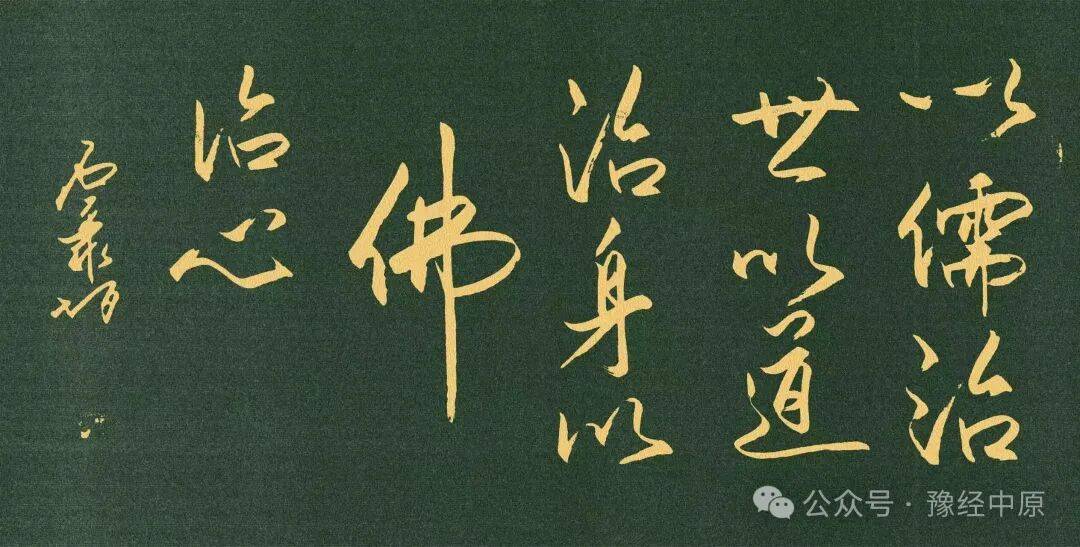 以儒治
世以道
治身以
佛
治心
公众号·豫经中原